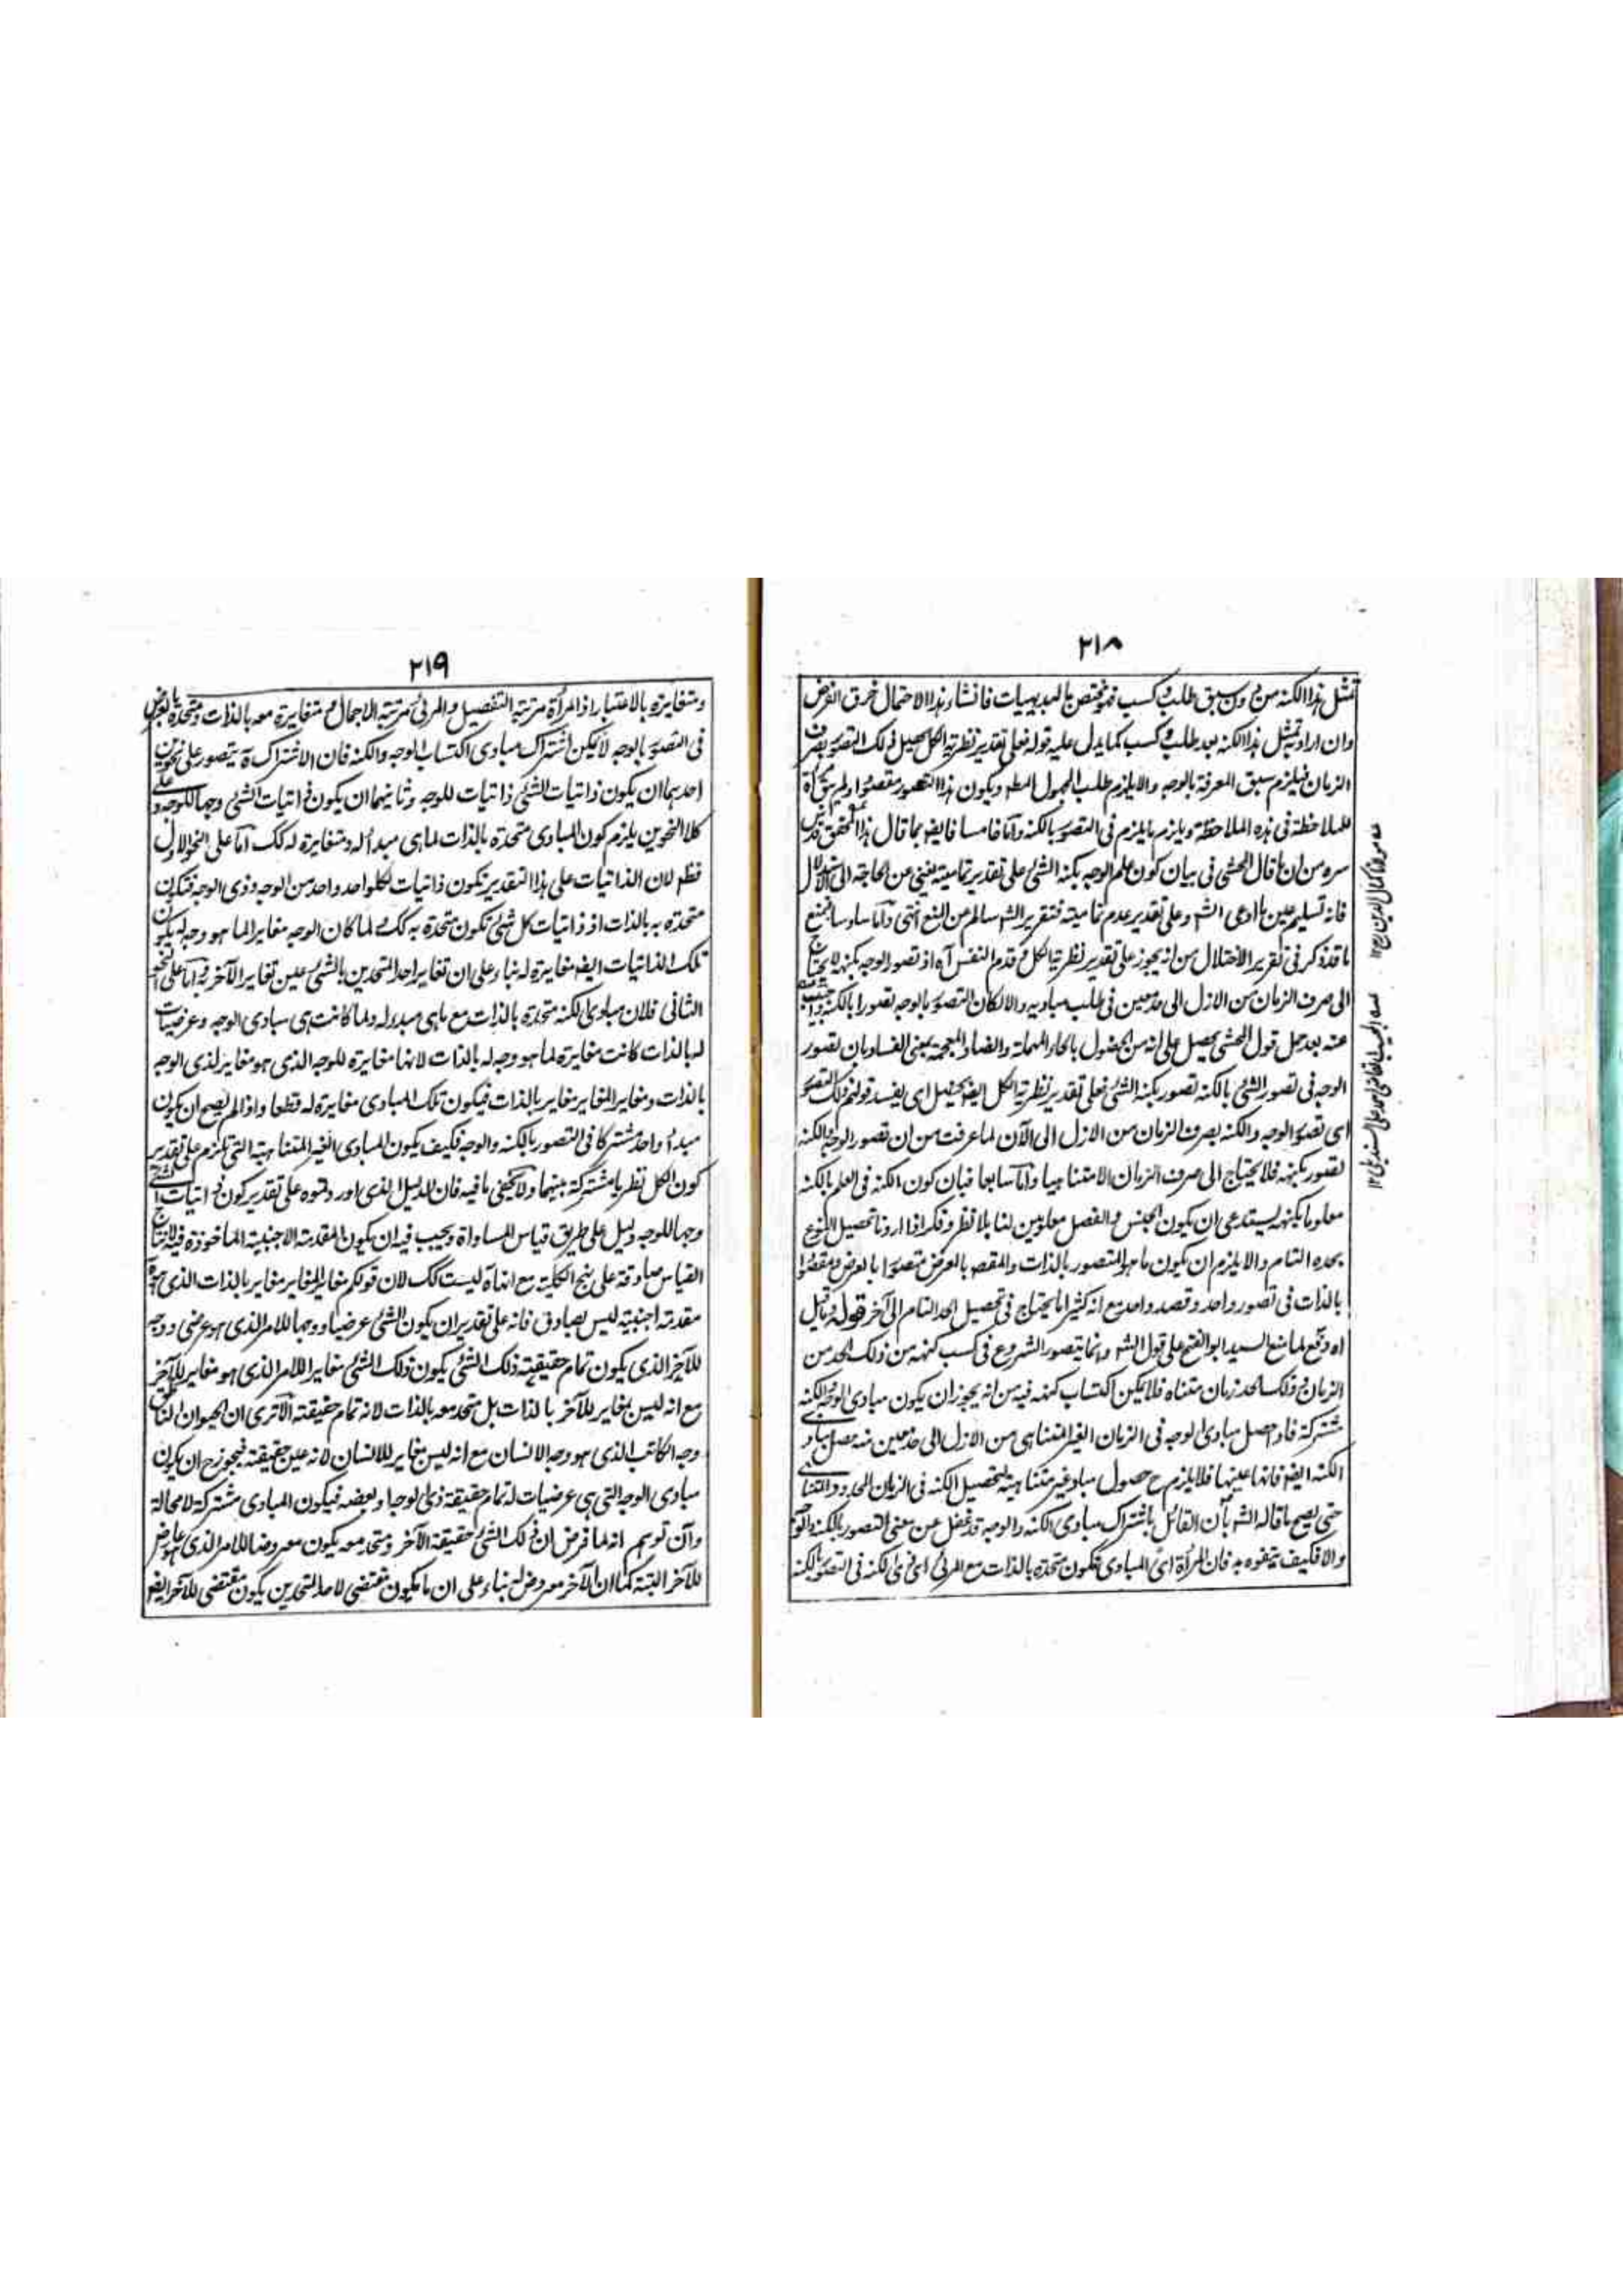 ٢١٨
تمثل هذا الكنه من دون سبق طلب وكسب فهو مختص بالبديهيات فانشاء هذا الاحتمال خرق الفرض
وان اراد تمثل هذا الكنه بعد طلب وكسب كما يدل عليه قوله فعلى تقدير نظرية الكل يحصل ذلك التصور بصرف
الزمان فيلزم سبق المعرفة بالوجه والا يلزم طلب المجهول المطـ ويكون هذا التصور مقصودا ولم يبق مرآة
للملاحظة فى هذه الملاحظة ويلزم ما يلزم فى التصور بالكنه وآما خامسا فايضـ بما قال هذا المحقق قدس
سره من ان ما قال المحشى فى بيان كون علم الوجه بكنه الشئ على تقدير تماميته يغنى عن الحاجة الى الاستدلال
فانه تسليم عين ما ادعى الشـ وعلى تقدير عدم تماميته فتقرير الشـ سالم عن المنع انتهى وآما سادسا فبمنع
ما قد ذكر فى تقرير الاختلال من انه يجوز على تقدير نظرية الكل وقدم النفس آه اذ تصور الوجه بكنهه لا يحتاج
الى صرف الزمان من الازل الى حد معين فى طلب مباديه والا لكان التصور بالوجه تصورا بالكنه واجيب
عنه بعد حمل قول المحشى يحصل على انه من الحضول بالحاء المهملة والضاد المعجمة بمعنى الفساد بان تصور
الوجه فى تصور الشئ بالكنه تصور بكنه الشئ فعلى تقدير نظرية الكل ايضـ يحضل اى يفسد قولهم ذلك التصور
اى تصور الوجه والكنه بصرف الزمان من الازل الى الآن لما عرفت من ان تصور الوجه بالكنه
تصور بكنهه فلا يحتاج الى صرف الزمان الا متناهيا وآما سابعا فبان كون الكنه فى العلم بالكنه
معلوما بكنهه يستدعى ان يكون الجنس والفصل معلومين لنا بلا نظر وفكر اذا اردنا تحصيل النوع
بحده التام والا يلزم ان يكون ما هو المتصور بالذات والمقصـ بالعرض متصورا بالعرض ومقصودا
بالذات فى تصور واحد وقصد واحد مع انه كثيرا ما يحتاج فى تحصيل الحد التام الى آخر قوله وما قيل
آه دفع لما منع السيد ابو الفتح على قول الشـ وانما يتصور الشروع فى كسب كنهه من ذلك الحد من
الزمان وذلك الحد زمان متناه فلا يمكن اكتساب كنهه فيه من انه يجوز ان يكون مبادى الوجه والكنه
مشتركة فاذا حصل مبادى الوجه فى الزمان الغير المتناهى من الازل الى حد معين منه حصل مبادى
الكنه ايضـ فانها عينها فلا يلزم ح حصول مباد غير متناهية لتحصيل الكنه فى الزمان المحدود المتناهى
حتى يصح ما قاله الشـ بأن القائل باشتراك مبادى الكنه والوجه قد غفل عن معنى التصور بالكنه وبالوجه
والا فكيف يتفوه به فان المرآة اى المبادى تكون متحدة بالذات مع المرئى اى ذى الكنه فى التصور بالكنه
عه مولانا كمال الدين رح ١٢
عه المجيب القاضى احمد على السنديلى ١٢
٢١٩
ومتغايرة بالاعتبار اذ المرآة مرتبة التفصيل والمرئى مرتبة الاجمال ومتغايرة معه بالذات ومتحدة بالعرض
فى التصور بالوجه لا يمكن اشتراك مبادى اكتساب الوجه والكنه فان الاشتراك آه يتصور على نحوين
احدهما ان يكون ذاتيات الشئ ذاتيات للوجه وثانيهما ان يكون ذاتيات الشئ وجها للوجه وعلى
كلا النحوين يلزم كون المبادى متحدة بالذات لما هى مبدأ له ومتغايرة له كك آما على النحو الاول
فظـ لان الذاتيات على هذا التقدير تكون ذاتيات لكل واحد واحد من الوجه وذى الوجه فتكون
متحدة به بالذات اذ ذاتيات كل شئ تكون متحدة به كك ولما كان الوجه مغايرا لما هو وجه له يكون
تلك الذاتيات ايضـ مغايرة له بناء على ان تغاير احد المتحدين بالشئ عين تغاير الآخر به وآما على النحو
الثانى فلان مبادى الكنه متحدة بالذات مع ما هى مبدء له ولما كانت هى مبادى الوجه وعرضيات
له بالذات كانت مغايرة لما هو وجه له بالذات لانها مغايرة للوجه الذى هو مغاير لذى الوجه
بالذات ومغاير المغاير مغاير بالذات فيكون تلك المبادى مغايرة له قطعا واذا لم يصح ان يكون
مبدأ واحد مشتركا فى التصور بالكنه والوجه فكيف يكون المبادى الغير المتناهية التى تلزم على تقدير
كون الكل نظريا مشتركة بينهما ولا يخفى ما فيه فان الدليل الذى اوردتموه على تقدير كون ذاتيات الشئ
وجها للوجه دليل على طريق قياس المساواة ويجب فيه ان يكون المقدمة الاجنبية الماخوذة فيه لانتاج
القياس صادقة على نهج الكلية مع انها آه ليست كك لان قولكم مغاير المغاير مغاير بالذات الذى هو
مقدمة اجنبية ليس بصادق فانه على تقدير ان يكون الشئ عرضيا ووجها للامر الذى هو عرضى ووجه
للآخر الذى يكون تمام حقيقته ذلك الشئ يكون ذلك الشئ مغايرا للامر الذى هو مغاير للآخر
مع انه ليس بمغاير للآخر بالذات بل متحد معه بالذات لانه تمام حقيقته الآ ترى ان الحيوان الناطق
وجه الكاتب الذى هو وجه الانسان مع انه ليس مغاير للانسان لانه عين حقيقته فيجوز ح ان يكون
مبادى الوجه التى هى عرضيات له تمام حقيقة ذى الوجه او بعضه فيكون المبادى مشتركة لا محالة
وآن توهم انه لما فرض ان ذلك الشئ حقيقة الآخر ومتحد معه يكون معروضا للامر الذى هو عارض
للآخر البتة كما ان الآخر معروض له بناء على ان ما يكون مقتضى لاحد المتحدين يكون مقتضى للآخر ايضـ